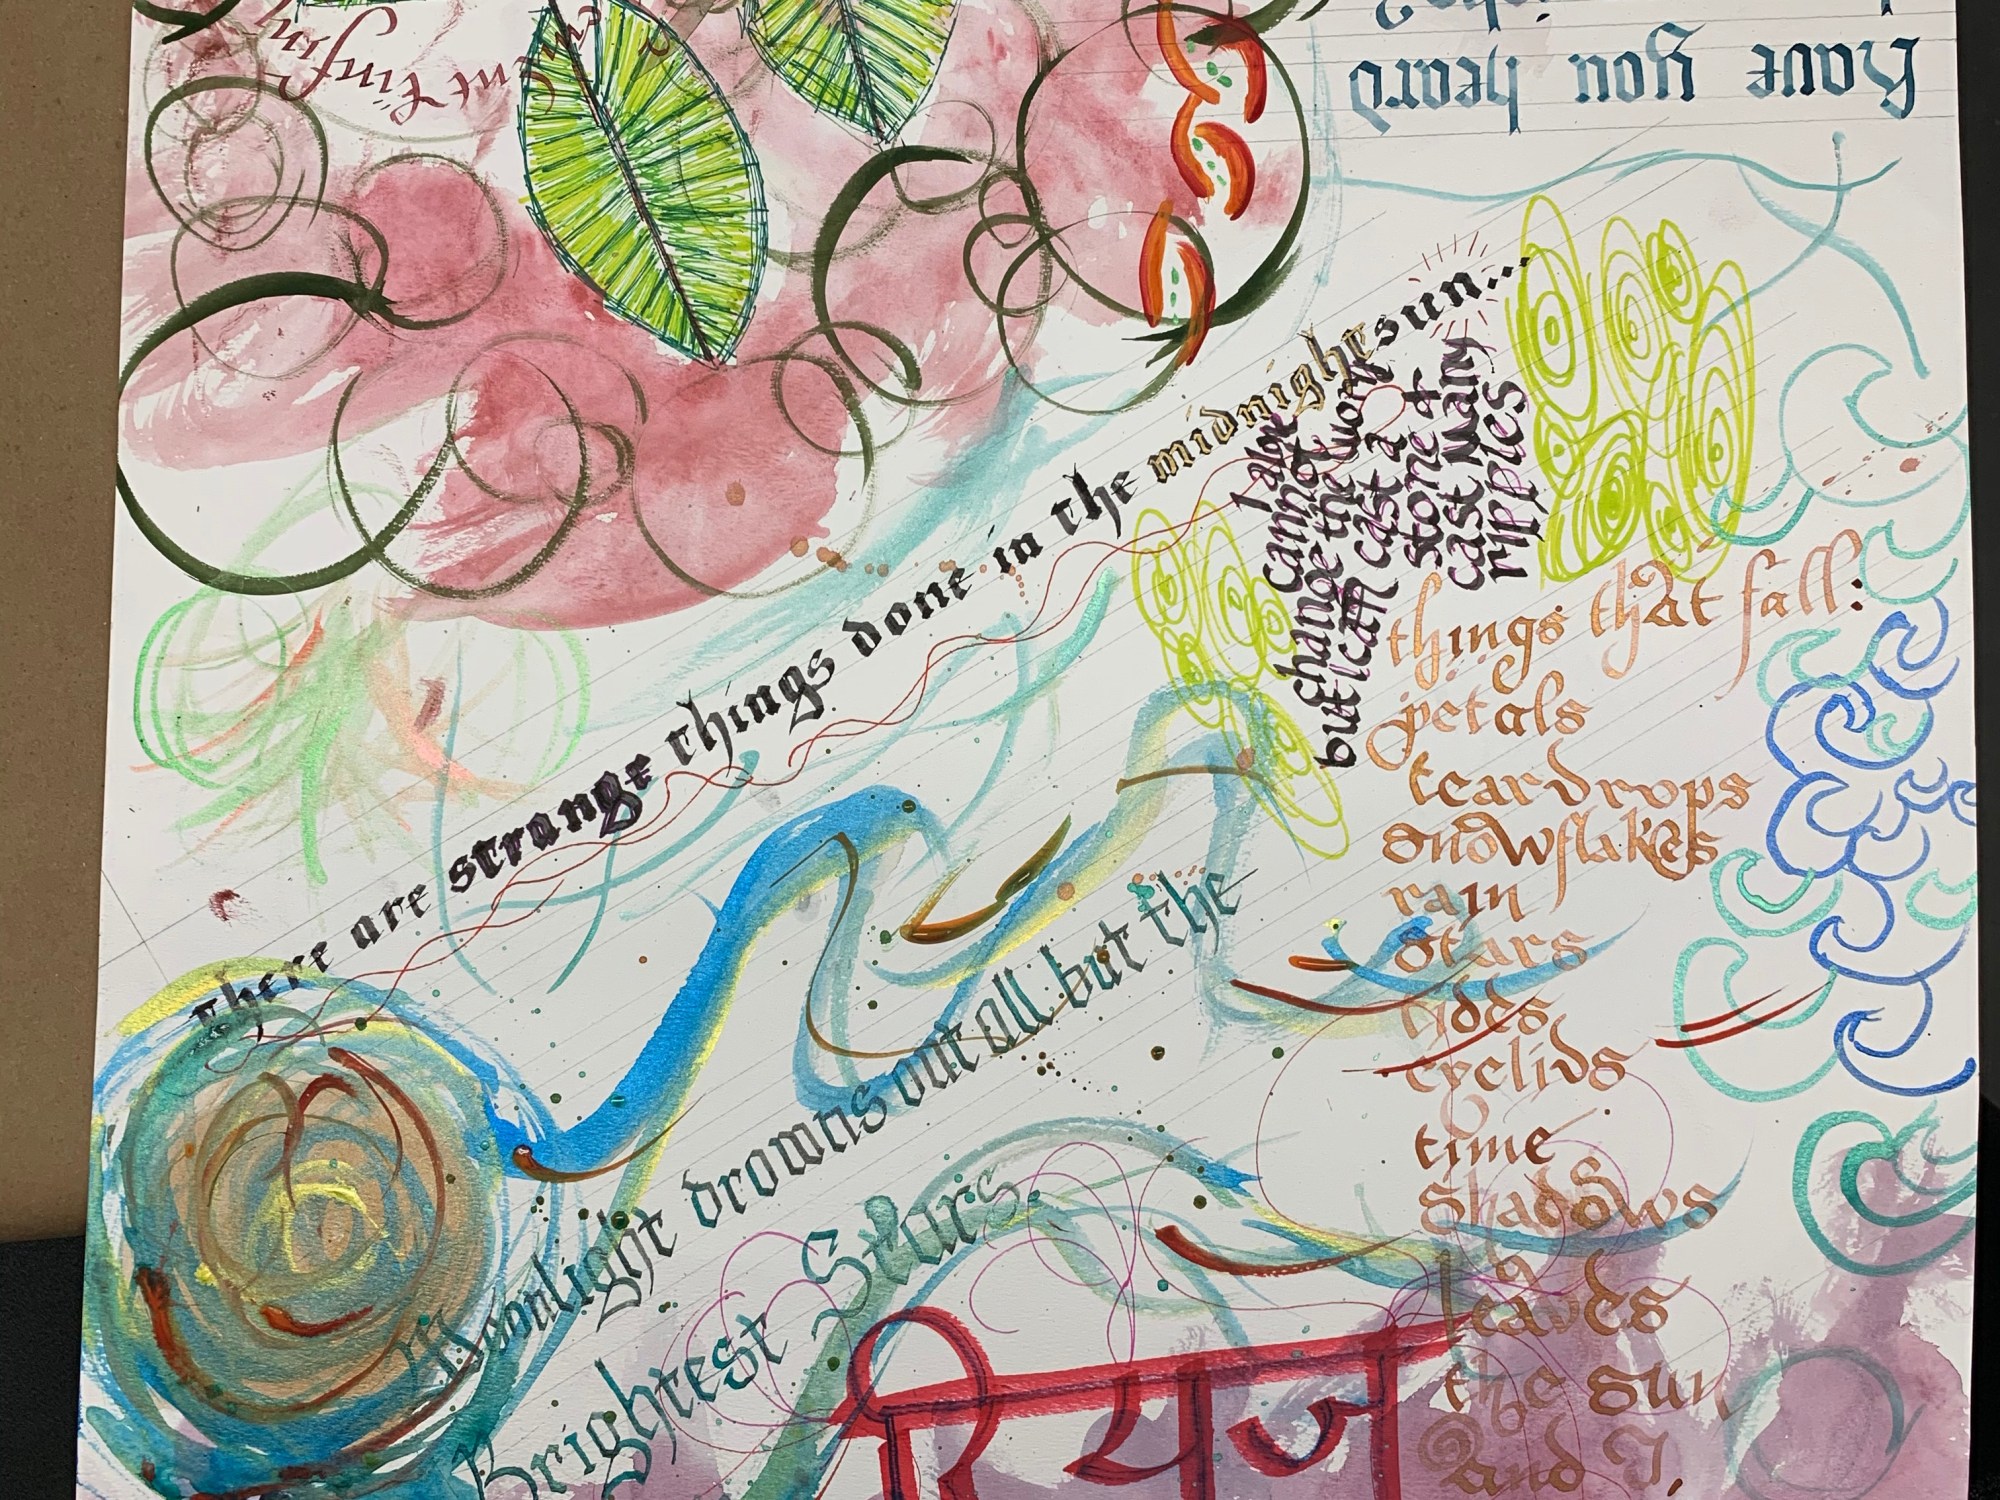 Have you heard
There are strange things done in the midnight sun...
I alone
cannot
change the world
but I can cast a
stone &
cast Many
ripples
things that fall:
petals
teardrops
snowflakes
rain
stars
tides
eyelids
time
shadows
leaves
the sun
and I.
Moonlight drowns out all but the
Brightest Stars.